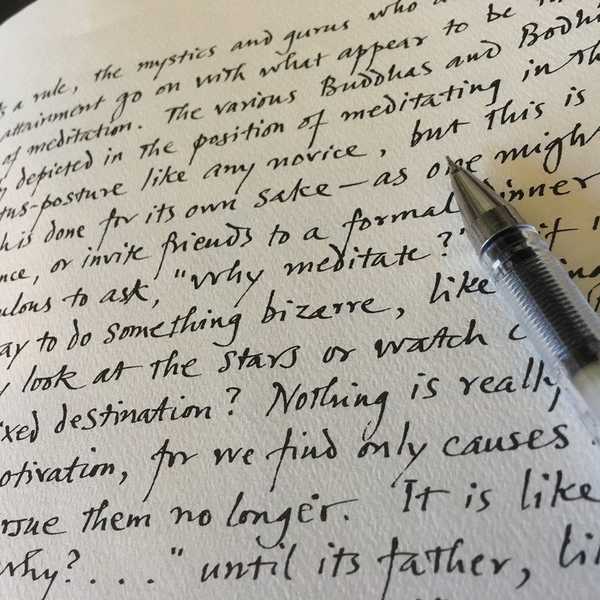 a rule, the mystics and gurus who
attainment go on with what appear to be
of meditation. The various Buddhas and Bodhi
depicted in the position of meditating in th
tus-posture like any novice, but this is
his done for its own sake — as one migh
nce, or invite friends to a formal inner
ulous to ask, "Why meditate?" if
ay to do something bizarre, like
look at the stars or watch
ixed destination? Nothing is really
otivation, for we find only causes
rsue them no longer. It is like
Why?...." until its father, li